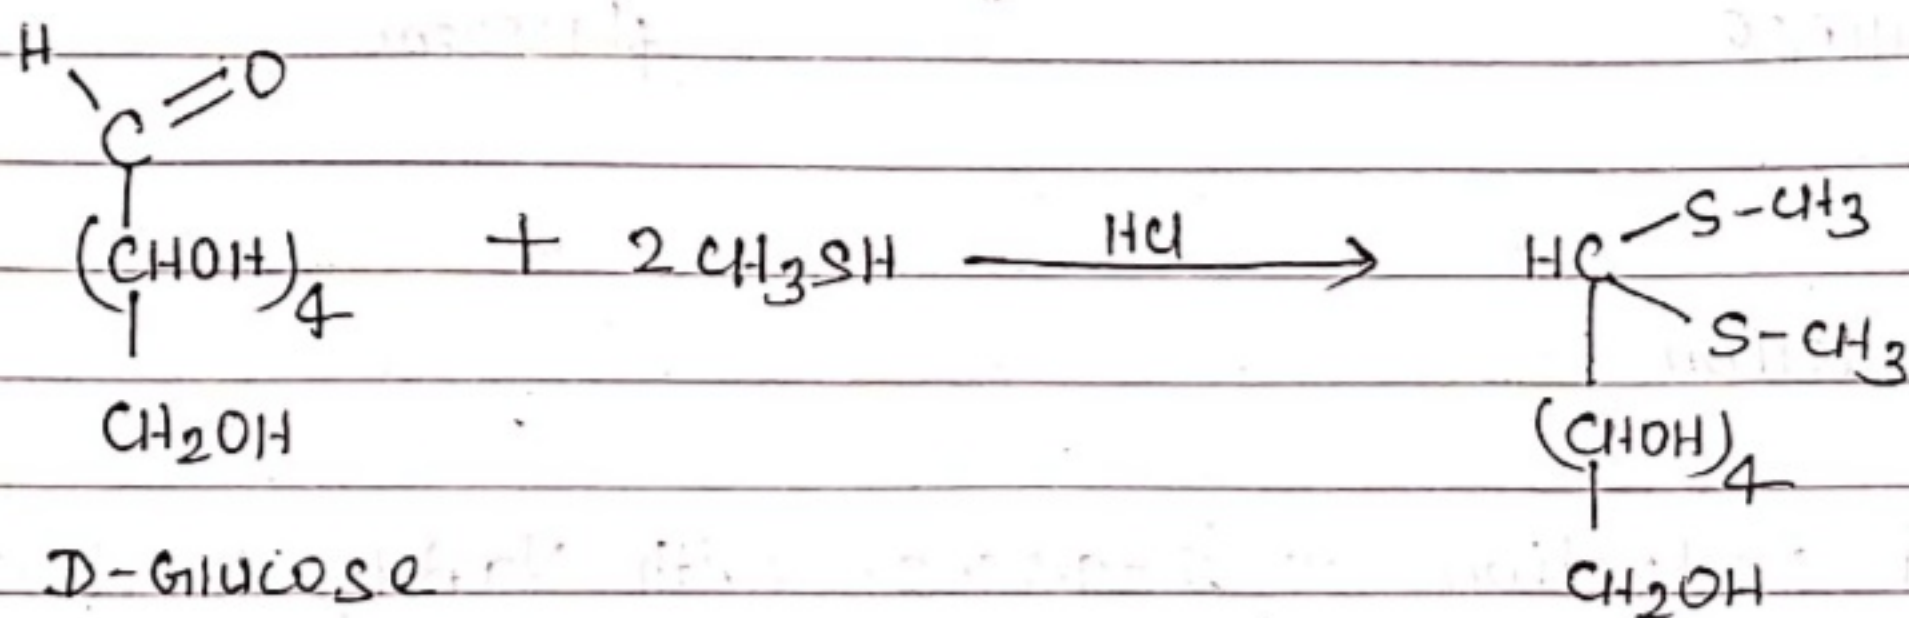 H
C=O
(CHOH)4 + 2 CH3SH HCl → HC
S-CH3
S-CH3
CH2OH
(CHOH)4
CH2OH
D-Glucose